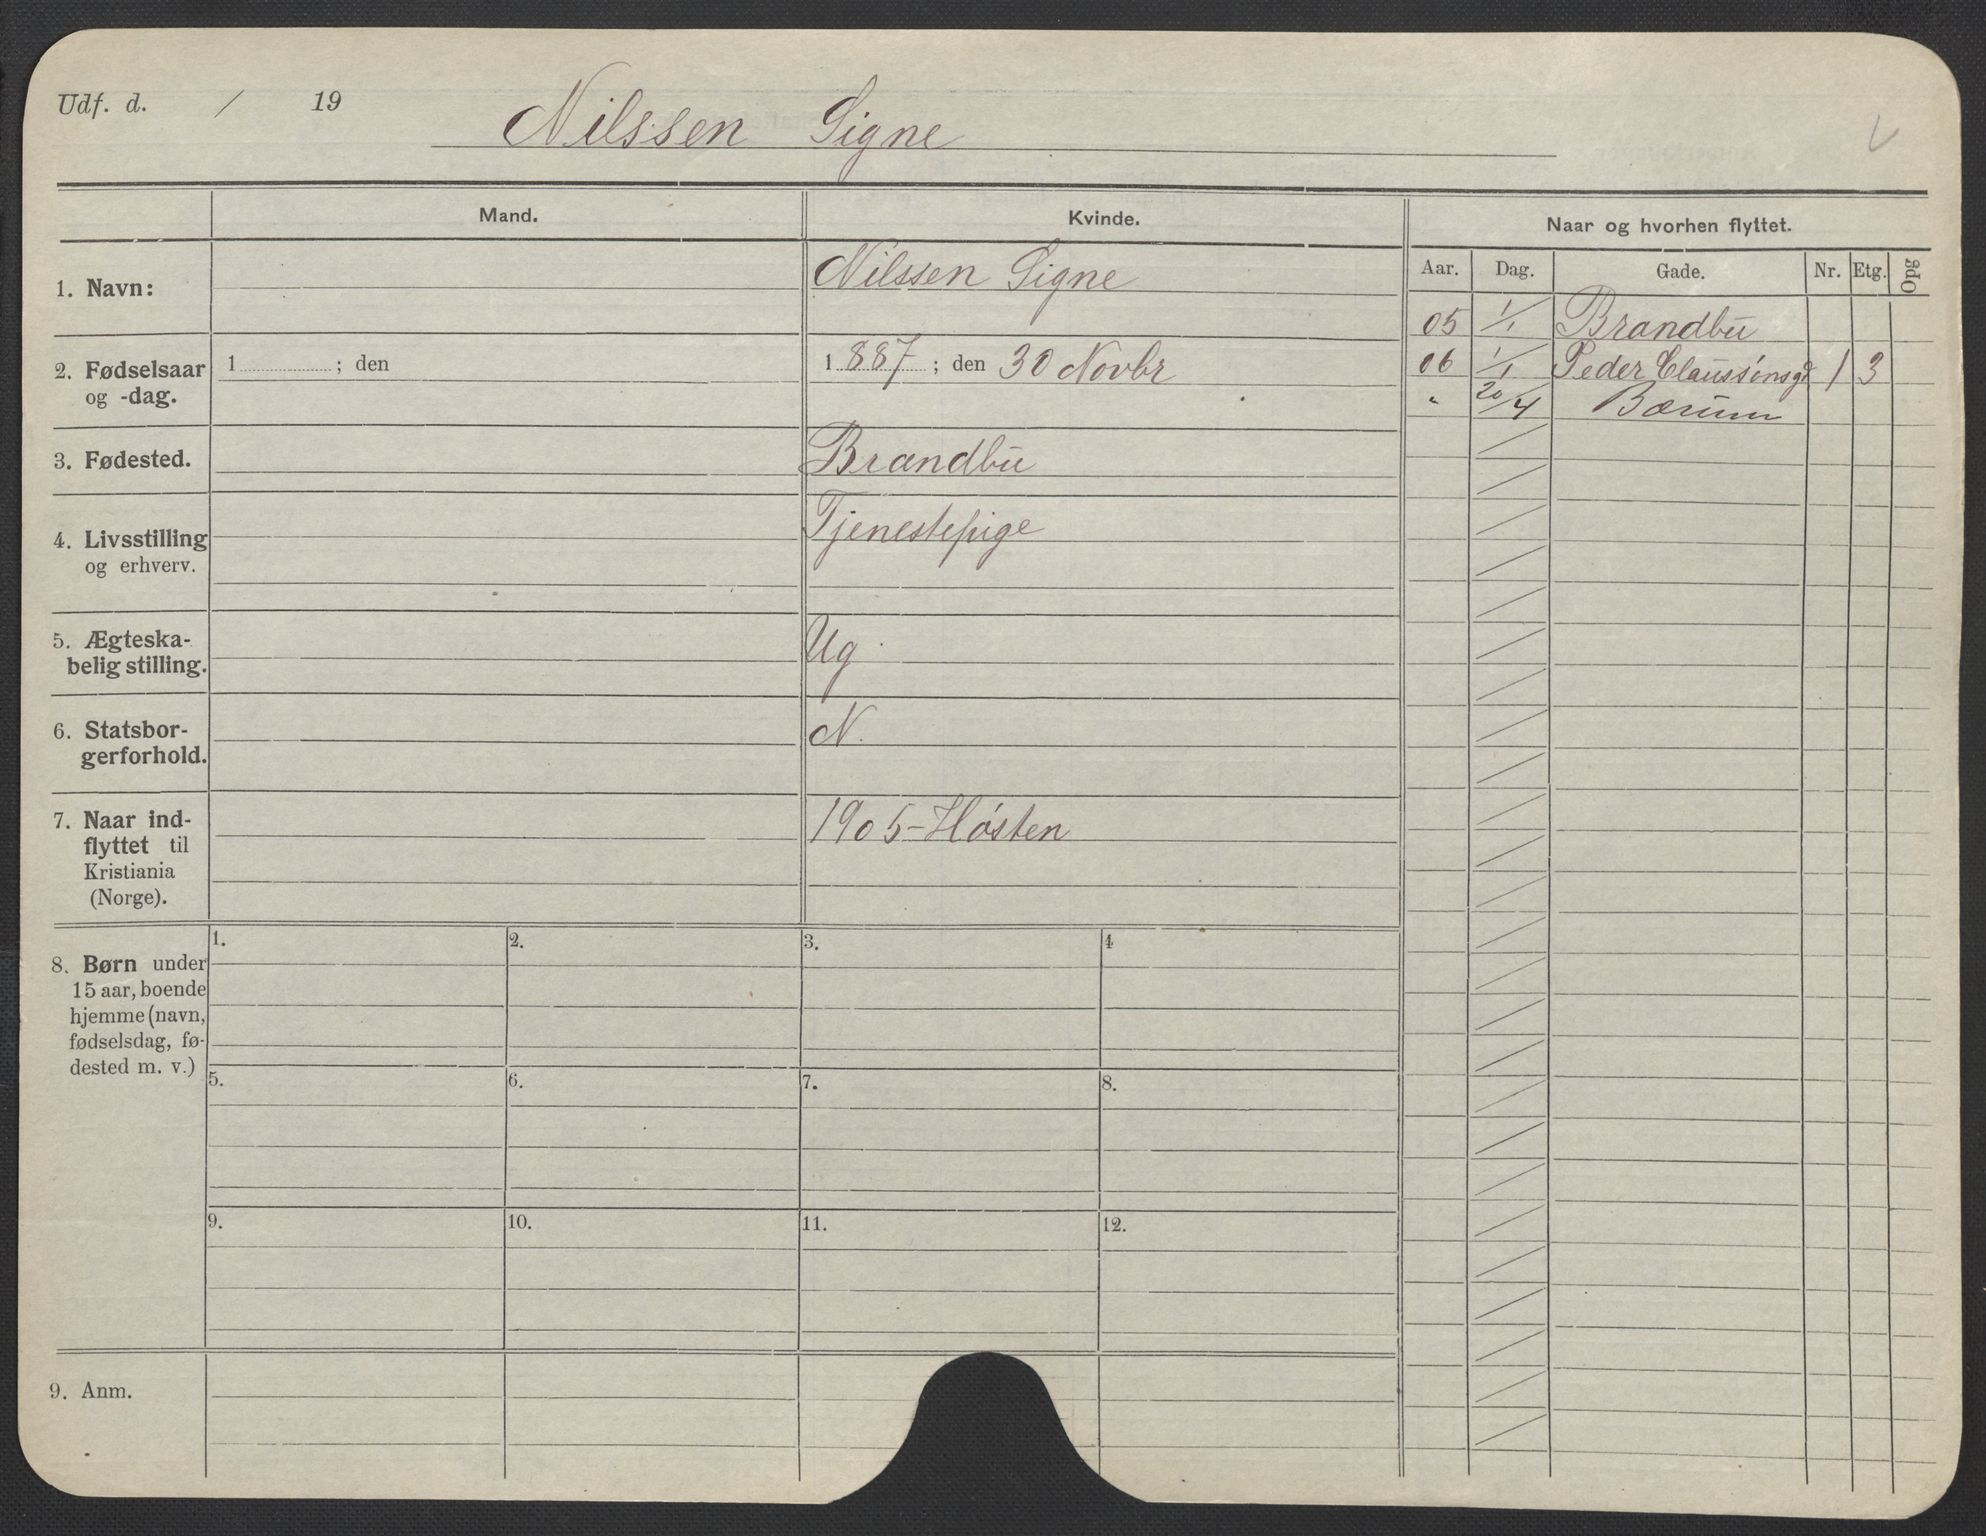 Udf. d. / 19
Nilssen Signe
Mand.
Kvinde.
Naar og hvorhen flyttet.
Aar. Dag. Gade. Nr. Etg. Opg
1. Navn:
Nilssen Signe
05 1/1 Brandbu
2. Fødselsaar
og -dag.
1 ; den
1887 ; den 30 Novbr
06 1/1 Peder Claussønsgd 1 3
" 20/4 Bærum
3. Fødested.
Brandbu
4. Livsstilling
og erhverv.
Tjenestepige
5. Ægteska-
belig stilling.
Ug.
6. Statsbor-
gerforhold.
N.
7. Naar ind-
flyttet til
Kristiania
(Norge).
1905-Høsten
8. Børn under
15 aar, boende
hjemme (navn,
fødselsdag, fø-
dested m. v.)
1. 2. 3. 4
5. 6. 7. 8.
9. 10. 11. 12.
9. Anm.